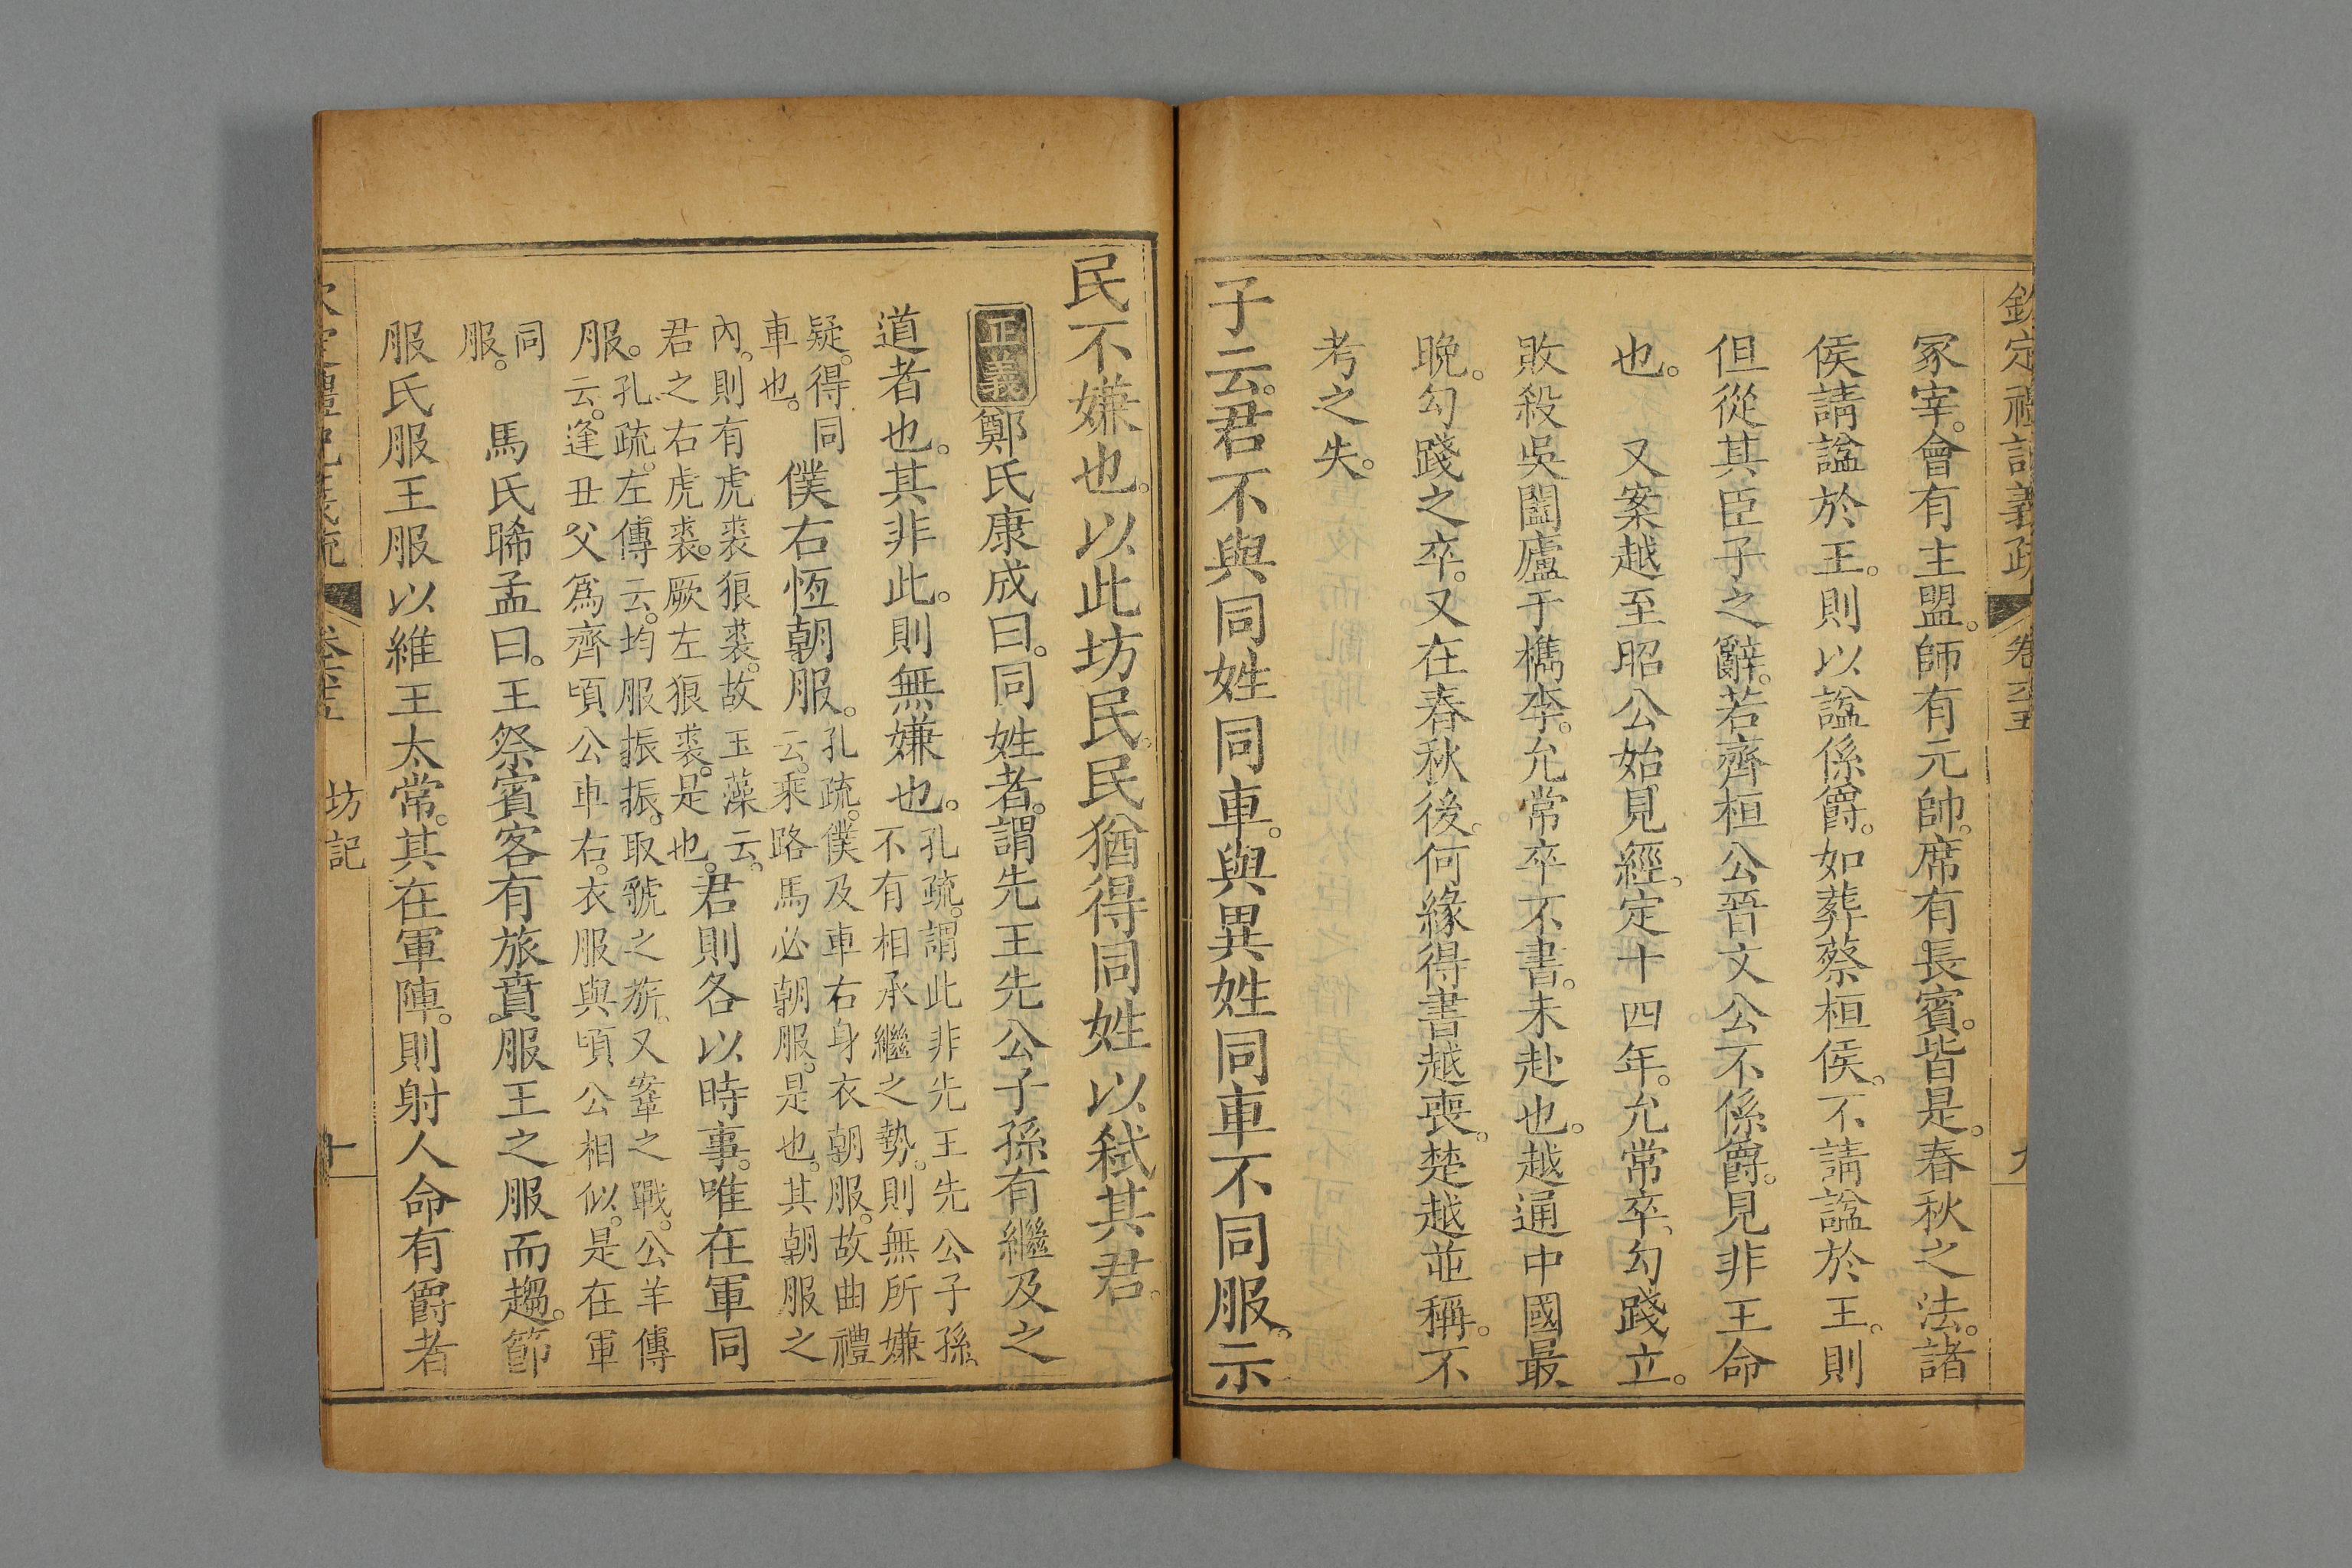 欽定禮記義疏 卷六十五 九
冢宰。會有主盟。師有元帥。席有長賓。皆是。春秋之法。諸
侯請諡於王。則以諡係爵。如葬蔡桓侯。不請諡於王。則
但從其臣子之辭。若齊桓公晉文公不係爵。見非王命
也。 又案越至昭公始見經。定十四年。允常卒、勾踐立。
敗殺吳闔廬于檇李。允常卒不書。未赴也。越通中國最
晚。勾踐之卒。又在春秋後。何緣得書越喪。楚越並稱。不
考之失。
子云。君不與同姓同車。與異姓同車不同服。示
民不嫌也。以此坊民。民猶得同姓以弑其君。
正義 鄭氏康成曰。同姓者。謂先王先公子孫有繼及之
道者也。其非此。則無嫌也。
孔疏。謂此非先王先公子孫、
不有相承繼之勢。則無所嫌
疑。得同
車也。
僕右恆朝服。
孔疏。僕及車右身衣朝服。故曲禮
云。乘路馬必朝服。是也。其朝服之
內。則有虎裘狼裘。故玉藻云。
君之右虎裘。厥左狼裘。是也。
君則各以時事。唯在軍同
服。
孔疏。左傳云。均服振振。取虢之旂、又鞌之戰。公羊傳
云。逢丑父爲齊頃公車右。衣服與頃公相似。是在軍
同
服。
馬氏晞孟曰。王祭賓客有旅賁。服王之服而趨。節
服氏服王服以維王太常。其在軍陣。則射人命有爵者
坊記 十